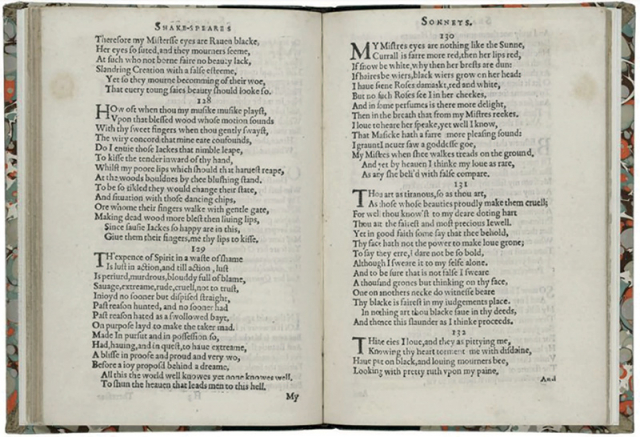 SHAKE-SPEARES
Therefore my Mistersse eyes are Rauen blacke,
Her eyes so suted, and they mourners seeme,
At such who not borne faire no beauty lack,
Slandring Creation with a false esteeme,
Yet so they mourne becomming of their woe,
That euery toung saies beauty should looke so.
128
HOw oft when thou my musike musike playst,
Vpon that blessed wood whose motion sounds
With thy sweet fingers when thou gently swayst,
The wiry concord that mine eare confounds,
Do I enuie those Iackes that nimble leape,
To kisse the tender inward of thy hand,
Whilst my poore lips which should that haruest reape,
At the woods bouldnes by thee blushing stand.
To be so tikled they would change their state,
And situation with those dancing chips,
Ore whome their fingers walke with gentle gate,
Making dead wood more blest then liuing lips,
Since sausie Iackes so happy are in this,
Giue them their fingers, me thy lips to kisse.
129
TH'expence of Spirit in a waste of shame
Is lust in action, and till action, lust
Is periurd, murdrous, blouddy full of blame,
Sauage, extreame, rude, cruell, not to trust,
Inioyd no sooner but dispised straight,
Past reason hunted, and no sooner had
Past reason hated as a swollowed bayt,
On purpose layd to make the taker mad.
Made In pursut and in possession so,
Had, hauing, and in quest, to haue extreame,
A blisse in proofe and proud and very wo,
Before a ioy proposd behind a dreame,
All this the world well knowes yet none knowes well,
To shun the heauen that leads men to this hell.
My
SONNETS.
130
MY Mistres eyes are nothing like the Sunne,
Currall is farre more red, then her lips red,
If snow be white, why then her brests are dun:
If haires be wiers, black wiers grow on her head:
I haue seene Roses damaskt, red and white,
But no such Roses see I in her cheekes,
And in some perfumes is there more delight,
Then in the breath that from my Mistres reekes.
I loue to heare her speake, yet well I know,
That Musicke hath a farre more pleasing sound:
I graunt I neuer saw a goddesse goe,
My Mistres when shee walkes treads on the ground,
And yet by heauen I thinke my loue as rare,
As any she beli'd with false compare.
131
THou art as tiranous, so as thou art,
As those whose beauties proudly make them cruell;
For well thou know'st to my deare doting hart
Thou art the fairest and most precious Iewell.
Yet in good faith some say that thee behold,
Thy face hath not the power to make loue grone;
To say they erre, I dare not be so bold,
Although I sweare it to my selfe alone.
And to be sure that is not false I sweare
A thousand grones but thinking on thy face,
One on anothers necke do witnesse beare
Thy blacke is fairest in my iudgements place.
In nothing art thou blacke saue in thy deeds,
And thence this slaunder as I thinke proceeds.
132
THine eies I loue, and they as pittying me,
Knowing thy heart torment me with disdaine,
Haue put on black, and louing mourners bee,
Looking with pretty ruth vpon my paine,
And